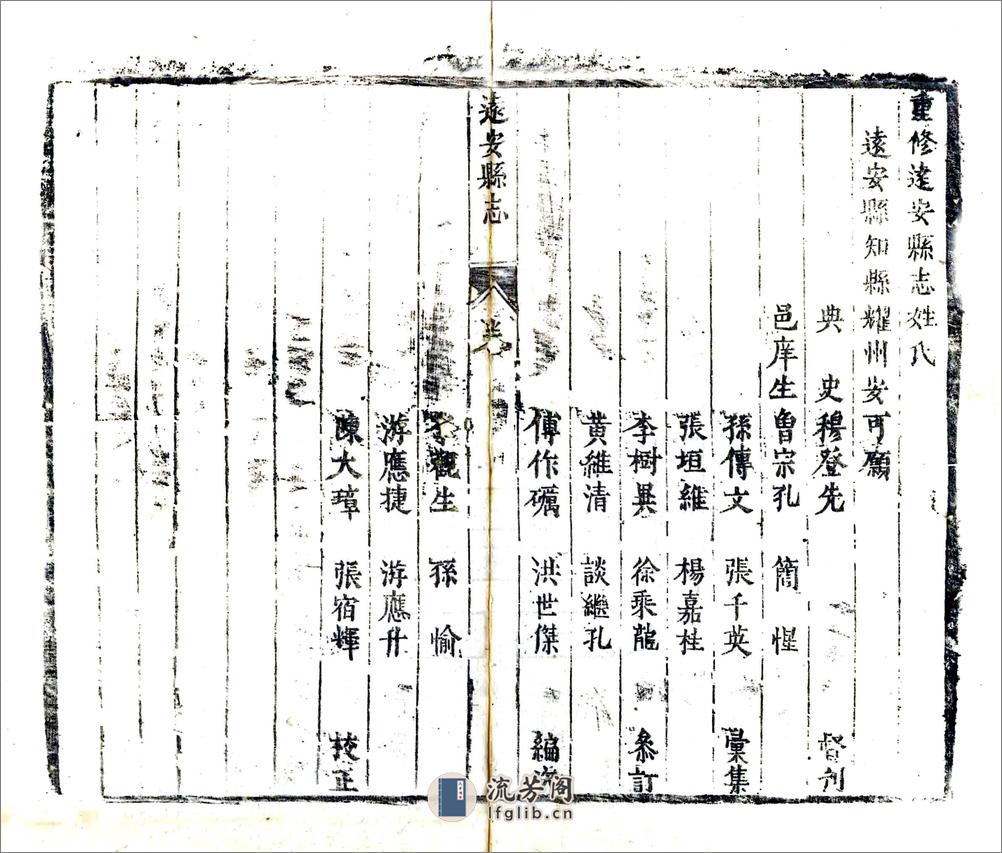 重修遠安縣志姓氏
遠安縣知縣耀州安可願
典 史穆登先 督刋
邑庠生曾宗孔 簡 惺
孫傳文 張千英 彙集
張垣維 楊嘉桂
李樹異 徐乘龍 叅訂
黄維清 談繼孔
傅作礪 洪世傑 編
遠安縣志
觀生 孫 愉
游應捷 游應升
陳大璋 張宿輝 挍正
流芳阁
lfglib.cn